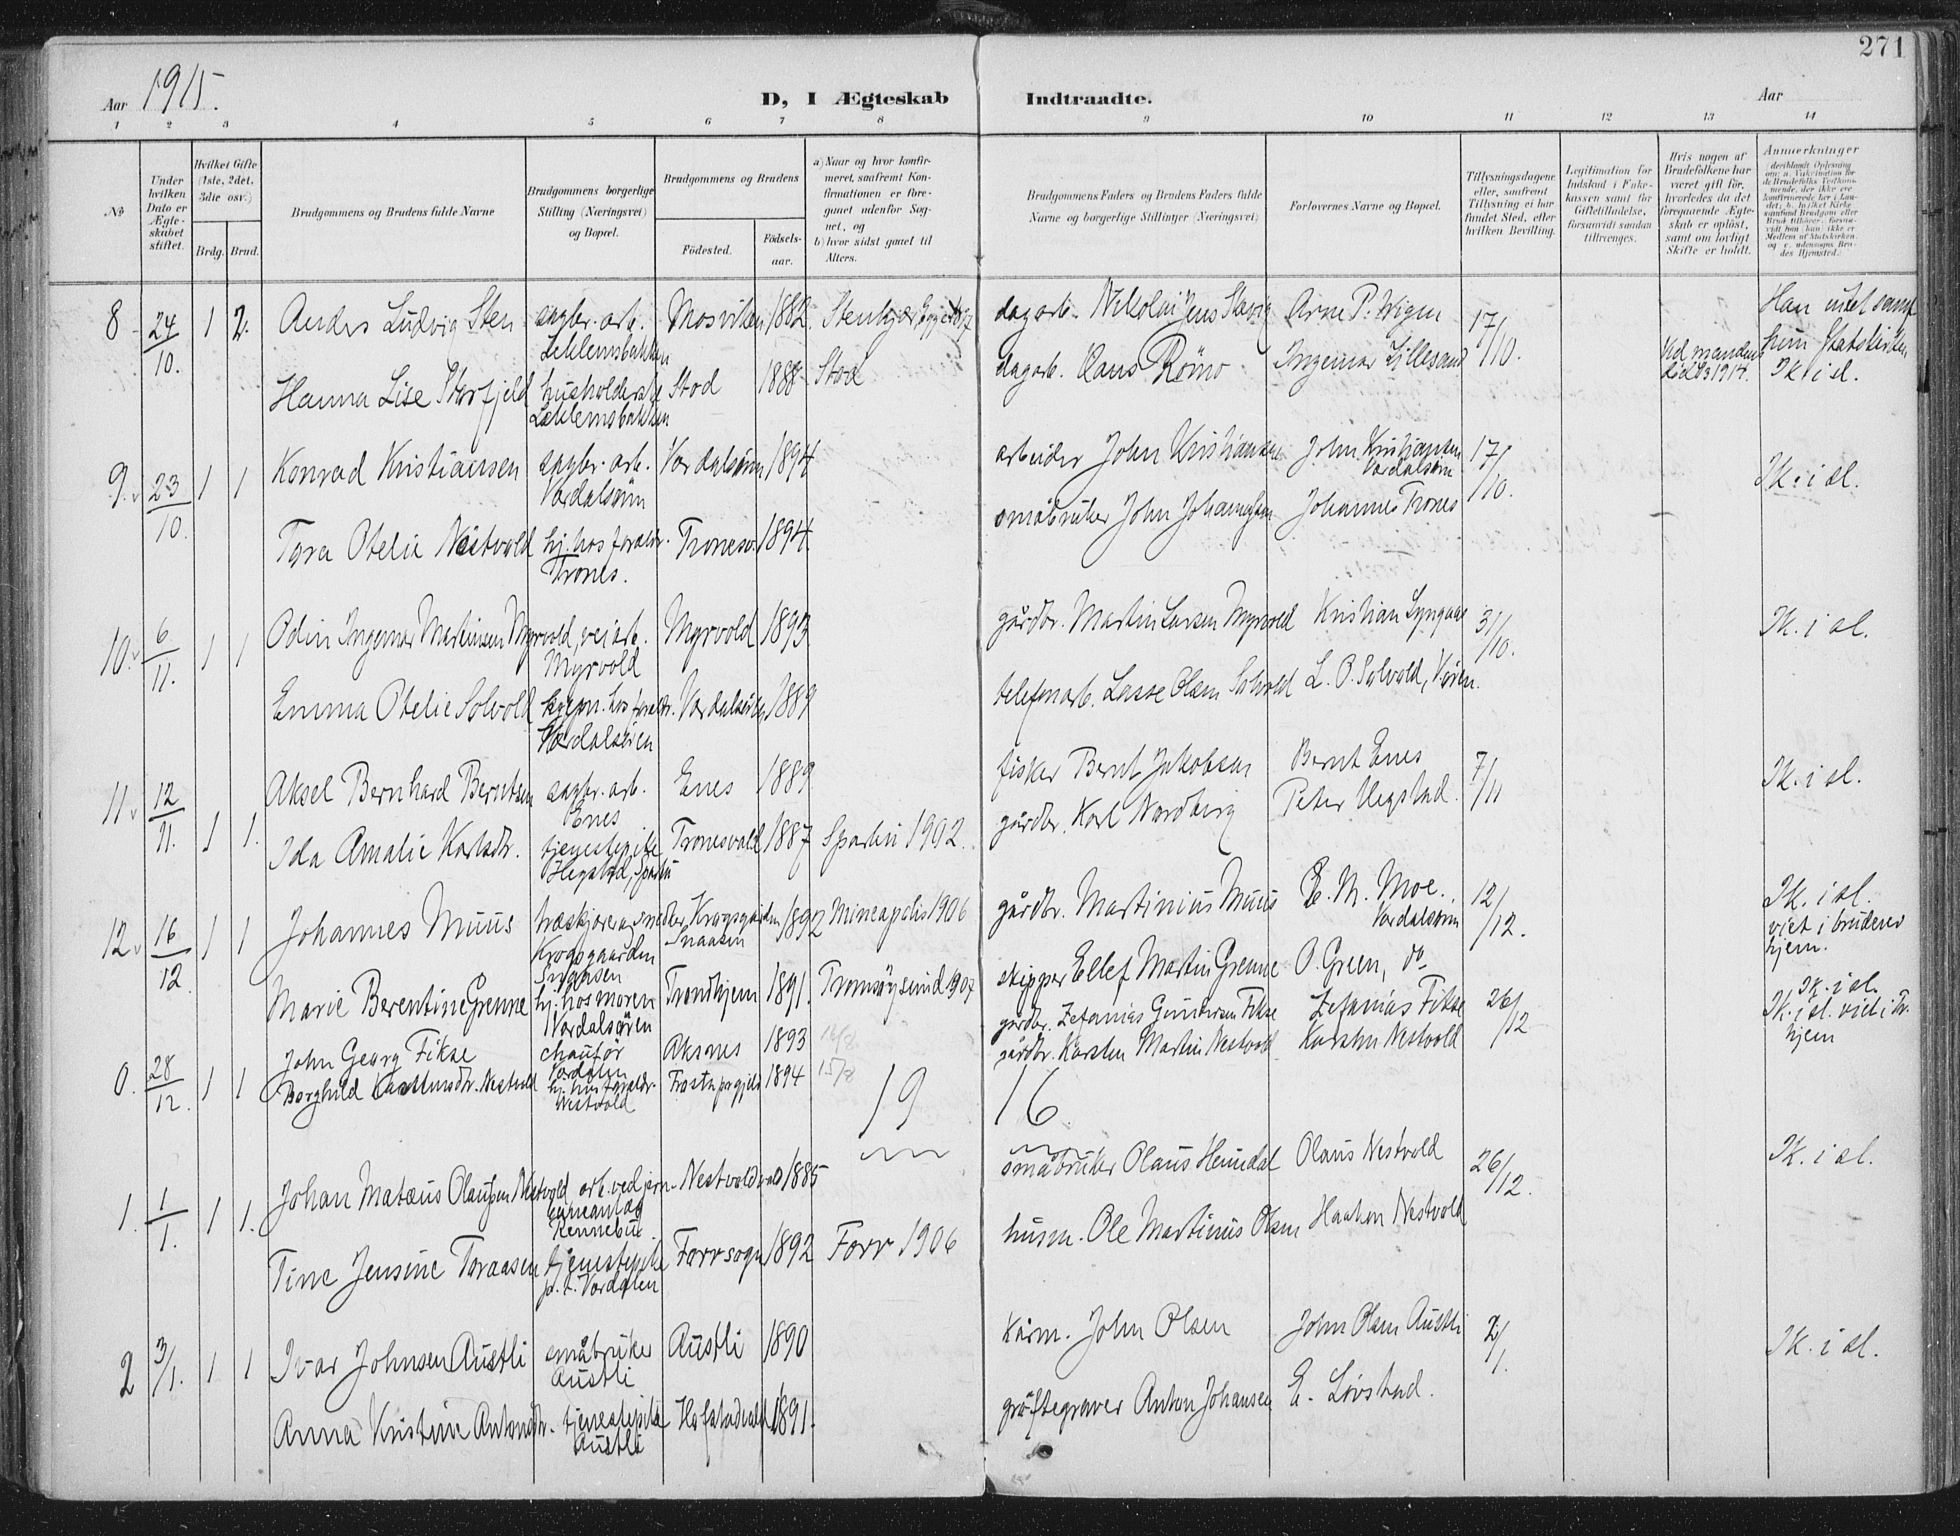 271
Aar 1915.
D, I Ægteskab Indtraadte.
Aar
1 2 3 4 5 6 7 8 9 10 11 12 13 14
№
Under hvilken Dato er Ægteskabet stiftet.
Hvilket Gifte (1ste, 2det, 3die osv.)
Brdg. Brud.
Brudgommens og Brudens fulde Navne
Brudgommens borgerlige Stilling (Næringsvei) og Bopæl.
Brudgommens og Brudens
Fødested.
Fødselsaar.
a) Naar og hvor konfirmeret, saafremt Konfirmationen er foregaaet udenfor Sognet, og
b) hvor sidst gaaet til Alters.
Brudgommens Faders og Brudens Faders fulde Navne og borgerlige Stillinger (Næringsvei).
Forlovernes Navne og Bopæl.
Tillysningsdagene eller, saafremt Tillysning ei har fundet Sted, efter hvilken Bevilling.
Legitimation for Indskud i Enkekassen samt for Giftetilladelse, forsaavidt saadan tiltrænges.
Hvis nogen af Brudefolkene har været gift før, hvorledes da det foregaaende Ægteskab er opløst, samt om lovligt Skifte er holdt.
Anmærkninger
8 24/10. 1 2. Anders Ludvig Sten sagbr. arb. Mosviken 1882 Stenkjær dagarb. Nikolai Jens Arne P. Wigen 17/10. Han utet samf
Leklemsbakken hun Statskirken
Hanna Lise Storfjeld husholderske Stod 1888 Stod dagarb. Hans Römo Ingemar Lillesand Ved mandens død 1914. Ik. i sl.
Leklemsbakken
9. 23/10. 1 1 Konrad Kristiansen sagbr. arb. Værdalsøren 1894 arbeider John Kristiansen John Kristiansen Værdalsøren 17/10. Ik. i sl.
Værdalsøren
Tyra Otelie Nestvold hj. hos foræld. Tronesv. 1894. småbruker John Johannesen Johannes Trones
Trones.
10. 6/11. 1 1 Odin Ingemar Martinsen Myrvold, veiarb. Myrvold 1893 gårdbr. Martin Larsen Myrvold Kristian Lyngaas 31/10. Ik. i sl.
Myrvold
Emma Otelie Solvold hos foræld. Værdalsøren 1889 telefonarb. Lasse Olsen Solvold L. O. Solvold, Ören.
Værdalsøren
11 12/11. 1 1. Aksel Bernhard Berntsen sagbr. arb. Enes 1889 fisker Bernt Jakobsen Bernt Enes 7/11 Ik. i sl.
Enes
Ida Amalie Karlsdr. tjenestepike Tronesvald 1887 Sparbu 1902. gårdbr. Karl Nordberg Peter Hegstad.
Hegstad, Sparbu
12 16/12 1 1 Johannes Muus Krogsgaarden Snaasen 1892 Mineapolis 1906 gårdbr. Martinius Muus E. M. Moe. Værdalsøren 12/12. Ik. i sl. viet i brudens hjem.
Krogsgaarden
Snaasen
Marie Berentine Grenne hj. hos moren Trondhjem 1891. Tromsøysund 1907 skipper Ellef Martin Grenne O. Green, do Ik. i sl.
Værdalsøren
0. 28/12. 1 1 John Georg Fikse chaufför Aksnes 1893 gårdbr. Zefanias Gundersen Fikse Zefanias Fikse 26/12 Ik. i sl. viet i br. hjem
Værdalen
Borghild Nestvold hj. hos foræld. Nestvold 1894 15/8 gårdbr. Karsten Martin Nestvold Karsten Nestvold
1916.
1. 1/1. 1 1. Johan Matæus Olausen Nestvold arb. ved jern- Nestvoldvald 1885 småbruker Olaus Heimdal Olaus Nestvold 26/12. Ik. i sl.
Rennebu.
Tine Jensine Toraasen tjenestepike Forrsogn 1892 Forr 1906 husm. Ole Martinus Olsen Haakon Nestvold
p. t. Værdalen
2 3/1. 1 1 Ivar Johnsen Austli småbruker Austli 1890 kårm. John Olsen John Olsen Austli 2/1. Ik. i sl.
Austli
Anna Kristine Antonsdr. tjenestepike 1891. grøftegraver Anton Johansen E. Lövstad.
Austli